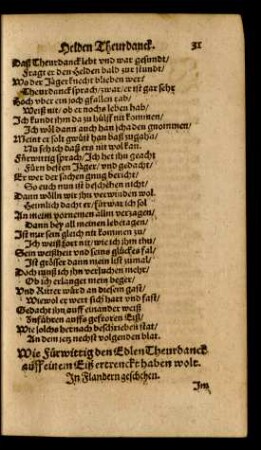 Helden Theurdanck. 31
Daß Theurdanck lebt vnd war gesundt/
Fragt er den Helden bald zur stundt/
Wo der Jäger knecht blieben wer?
Theurdanck sprach/ zwar/ er ist gar sehr
Hoch vber ein joch gfallen rab/
Weiß nit/ ob er nochs leben hab/
Ich kundt jhm da zu hülff nit kommen/
Ich wöl dann auch han schaden gnommen/
Meint er solt gwüst han baß zugaha/
Nu seh ich daß ers nit wol kan.
Fürwittig sprach/ Ich het jhn geacht
Fürn besten Jäger/ vnd gedacht/
Er wer der sachen gnug bericht/
So euch nun ist beschehen nicht/
Dann wölln wir jhn verwinden wol.
Heimlich dacht er/ fürwar ich sol
An meim vornemen allm verzagen/
Dann bey all meinen lebetagen/
Ist mir sein gleich nit kommen zu/
Ich weiß fort nit/ wie ich jhm thu/
Sein weißheit vnd seins glückes fal/
Ist grösser dann mein list zumal/
Doch muß ich jhn versuchen mehr/
Ob ich erlanget mein beger/
Vnd Ritter würd an diesem gast/
Wiewol er wert sich hart vnd fast/
Gedacht jhn auff einander weiß
Zuführen auffs gefroren Eiß/
Wie solchs hernach beschrieben stat/
An dem jetz nechst volgenden blat.
Wie Fürwittig den Edlen Theurdanck
auff einem Eiß ertrenckt haben wolt.
In Flandern geschehen.
Im